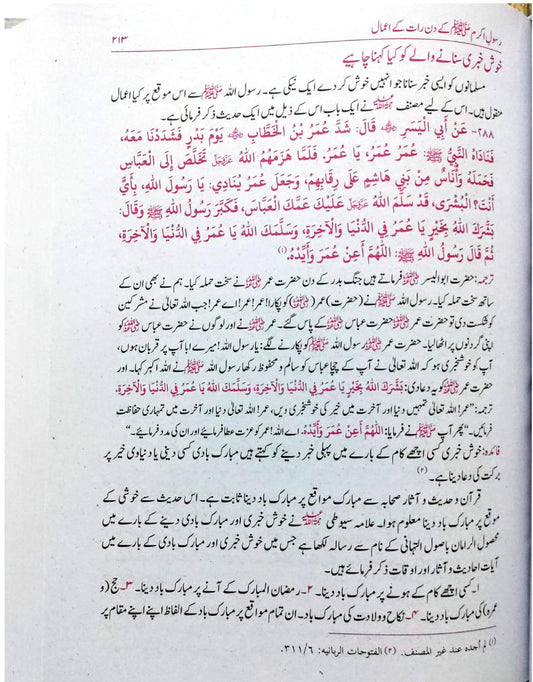 رسول اکرم ﷺ کے دن رات کے اعمال
۲۱۳
خوش خبری سنانے والے کو کیا کہنا چاہیے
مسلمانوں کو ایسی خبر سنانا جو انہیں خوش کر دے ایک نیکی ہے۔ رسول اللہ ﷺ سے اس موقع پر کیا اعمال
منقول ہیں۔ اس کے لیے مصنف رحمۃ اللہ علیہ نے ایک باب اس کے ذیل میں ایک حدیث ذکر فرمائی ہے۔
۲۸۸- عَنْ أَبِي الْيَسَرِ رضی اللہ عنہ قَالَ: شَدَّ عُمَرُ بْنُ الْخَطَّابِ رضی اللہ عنہ يَوْمَ بَدْرٍ فَشَدَدْنَا مَعَهُ،
فَنَادَاهُ النَّبِيُّ ﷺ: عُمَرُ عُمَرُ، يَا عُمَرُ، فَلَمَّا هَزَمَهُمُ اللهُ عَزَّوَجَلَّ تَخَلَّصَ إِلَى الْعَبَّاسِ
فَحَمَلَهُ وَأُنَاسٌ مِنْ بَنِي هَاشِمٍ عَلَى رِقَابِهِمْ، وَجَعَلَ عُمَرُ يُنَادِي: يَا رَسُولَ اللهِ، بِأَبِي
أَنْتَ! الْبُشْرَى، قَدْ سَلَّمَ اللهُ عَزَّوَجَلَّ عَلَيْكَ عَمَّكَ الْعَبَّاسَ، فَكَبَّرَ رَسُولُ اللهِ ﷺ وَقَالَ:
بَشَّرَكَ اللهُ بِخَيْرٍ يَا عُمَرُ فِي الدُّنْيَا وَالْآخِرَةِ، وَسَلَّمَكَ اللهُ يَا عُمَرُ فِي الدُّنْيَا وَالْآخِرَةِ،
ثُمَّ قَالَ رَسُولُ اللهِ ﷺ: اللّٰهُمَّ أَعِنْ عُمَرَ وَأَيِّدْهُ. (۱)
ترجمہ: حضرت ابوالیسر رضی اللہ عنہ فرماتے ہیں جنگ بدر کے دن حضرت عمر رضی اللہ عنہ نے سخت حملہ کیا۔ ہم نے بھی ان کے
ساتھ سخت حملہ کیا۔ رسول اللہ ﷺ نے (حضرت) عمر (رضی اللہ عنہ) کو پکارا عمر! عمر! اے عمر! جب اللہ تعالیٰ نے مشرکین
کو شکست دی تو حضرت عمر رضی اللہ عنہ حضرت عباس رضی اللہ عنہ کے پاس گئے۔ عمر رضی اللہ عنہ نے اور لوگوں نے حضرت عباس رضی اللہ عنہ کو
اپنی گردنوں پر اٹھا لیا۔ حضرت عمر رضی اللہ عنہ رسول اللہ ﷺ کو پکارنے لگے: یا رسول اللہ! میرے ابا آپ پر قربان ہوں،
آپ کو خوشخبری ہو کہ اللہ تعالیٰ نے آپ کے چچا عباس کو سالم و محفوظ رکھا، رسول اللہ ﷺ نے اللہ اکبر کہا۔ اور
حضرت عمر رضی اللہ عنہ کو یہ دعا دی: بَشَّرَكَ اللهُ بِخَيْرٍ يَا عُمَرُ فِي الدُّنْيَا وَالْآخِرَةِ، وَسَلَّمَكَ اللهُ يَا عُمَرُ فِي الدُّنْيَا وَالْآخِرَةِ.
ترجمہ: ”عمر! اللہ تعالیٰ تمہیں دنیا اور آخرت میں خیر کی خوشخبری دیں، عمر! اللہ تعالیٰ دنیا اور آخرت میں تمہاری حفاظت
فرمائیں۔“ پھر آپ ﷺ نے فرمایا: اللّٰهُمَّ أَعِنْ عُمَرَ وَأَيِّدْهُ. اے اللہ! عمر کو عزت عطا فرمائیے اور ان کی مدد فرمائیے۔“
فائدہ: خوش خبری کسی اچھے کام کے بارے میں پہلی خبر دینے کو کہتے ہیں مبارک بادی کسی دینی یا دنیاوی خیر پر
برکت کی دعا دینا ہے۔ (۲)
قرآن و حدیث و آثار صحابہ سے مبارک مواقع پر مبارک باد دینا ثابت ہے۔ اس حدیث سے خوشی کے
موقع پر مبارک باد دینا معلوم ہوا۔ علامہ سیوطی رحمۃ اللہ علیہ نے خوش خبری اور مبارک بادی دینے کے بارے میں
محصول الرامان باصول التہانی کے نام سے رسالہ لکھا ہے جس میں خوش خبری اور مبارک بادی کے بارے میں
آیات احادیث و آثار اور اوقات ذکر فرمائے ہیں۔
۱۔ کسی اچھے کام کے ہونے پر مبارک باد دینا۔ ۲۔ رمضان المبارک کے آنے پر مبارک باد دینا۔ ۳۔ حج (و
عمرہ) کی مبارک باد دینا۔ ۴۔ نکاح و ولادت کی مبارک باد۔ ان تمام مواقع پر مبارک باد کے الفاظ اپنے اپنے مقام پر
(۱) لم أجده عند غير المصنف. (۲) الفتوحات الربانيه: ۳۱۱/۶.